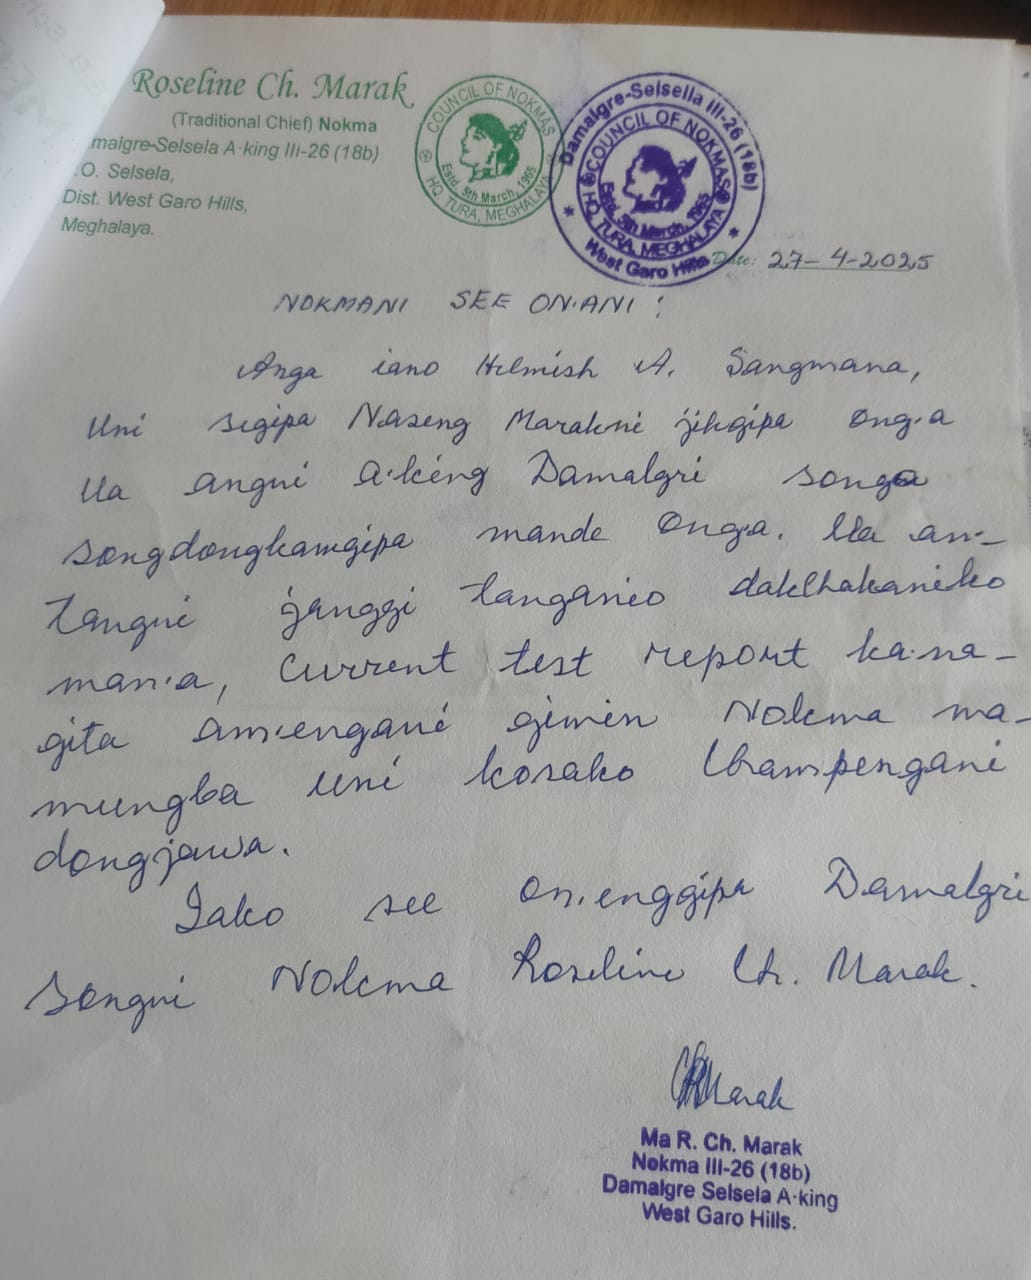 Roseline Ch. Marak
(Traditional Chief) Nokma
malgre-Selsela A·king III-26 (18b)
.O. Selsela,
Dist. West Garo Hills,
Meghalaya.
COUNCIL OF NOKMAS
Estd. 5th March, 1965
HQ. TURA, MEGHALAYA
Damalgre-Selsella III-26 (18b)
COUNCIL OF NOKMAS
Estd. 5th March, 1965
HQ. TURA, MEGHALAYA
West Garo Hills
Date: 27-4-2025
NOKMANI SEE ON·ANI :
Anga iano Hilmish A. Sangmana,
Uni segipa Naseng Marakni jikgipa ong·a
Ua angni A·king Damalgri songo
songdongkamgipa mande ong·a. Ua an·-
tangni janggi tanganio dakchakaniko
man·a, Current test report ka·na-
gita am·engani gimin Nokma ma-
mungba uni kosako champengani
dongjawa.
Iako see on·enggipa Damalgri
songni Nokma Roseline Ch. Marak.
Marak
Ma R. Ch. Marak
Nokma III-26 (18b)
Damalgre Selsela A·king
West Garo Hills.